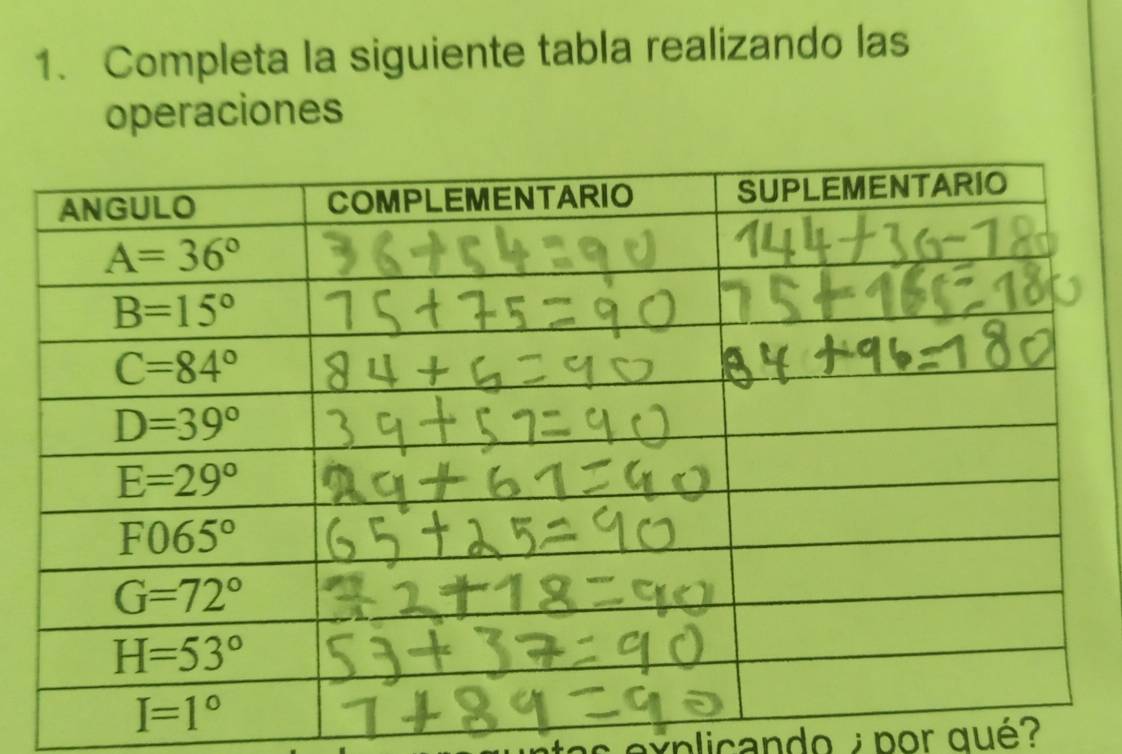 1. Completa la siguiente tabla realizando las
operaciones
ANGULO COMPLEMENTARIO SUPLEMENTARIO
A=36° 36+54=90 144+36=180
B=15° 15+75=90 15+165=180
C=84° 84+6=90 84+96=180
D=39° 39+51=90
E=29° 29+61=90
F065° 65+25=90
G=72° 72+18=90
H=53° 53+37=90
I=1° 1+89=90
explicando ¿por qué?